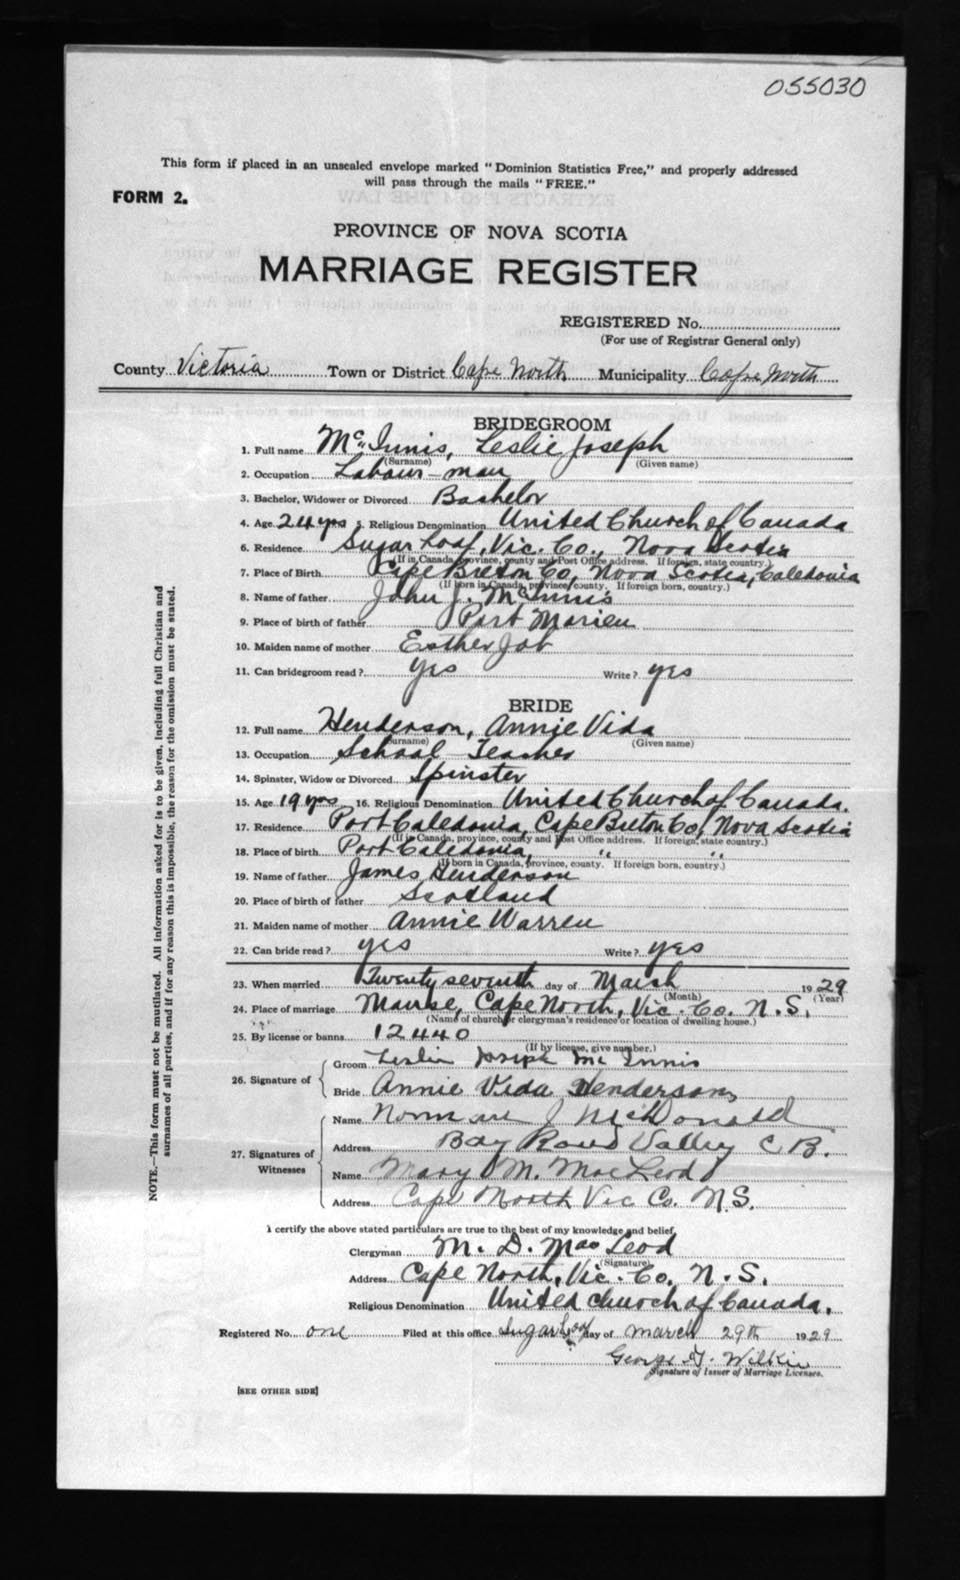 055030
This form if placed in an unsealed envelope marked "Dominion Statistics Free," and properly addressed
will pass through the mails "FREE."
FORM 2.
PROVINCE OF NOVA SCOTIA
MARRIAGE REGISTER
REGISTERED No.
(For use of Registrar General only)
County Victoria Town or District Cape North Municipality Cape North
BRIDEGROOM
1. Full name McInnis, Leslie Joseph
(Surname) (Given name)
2. Occupation Labour-man
3. Bachelor, Widower or Divorced Bachelor
4. Age 24 yrs 5. Religious Denomination United Church of Canada
6. Residence Sugar Loaf, Vic. Co., Nova Scotia
(If in Canada, province, county and Post Office address. If foreign, state country.)
7. Place of Birth Cape Breton Co, Nova Scotia, Caledonia
(If born in Canada, province, county. If foreign born, country.)
8. Name of father John J. McInnis
9. Place of birth of father Port Morien
10. Maiden name of mother Esther Job
11. Can bridegroom read? yes Write? yes
BRIDE
12. Full name Henderson, Annie Vida
(Surname) (Given name)
13. Occupation School Teacher
14. Spinster, Widow or Divorced Spinster
15. Age 19 yrs 16. Religious Denomination United Church of Canada.
17. Residence Port Caledonia, Cape Breton Co, Nova Scotia
(If in Canada, province, county and Post Office address. If foreign, state country.)
18. Place of birth Port Caledonia, " "
(If born in Canada, province, county. If foreign born, country.)
19. Name of father James Henderson
20. Place of birth of father Scotland
21. Maiden name of mother Annie Warren
22. Can bride read? yes Write? yes
23. When married Twenty seventh day of March 1929
(Month) (Year)
24. Place of marriage Manse, Cape North, Vic. Co. N.S.
(Name of church or clergyman's residence or location of dwelling house.)
25. By license or banns 12440
(If by license, give number.)
26. Signature of Groom Leslie Joseph McInnis
Bride Annie Vida Henderson
27. Signatures of Witnesses Name Norman J McDonald
Address Bay Road Valley C B.
Name Mary M. MacLeod
Address Cape North Vic Co. N.S.
I certify the above stated particulars are true to the best of my knowledge and belief.
Clergyman M. D. MacLeod
(Signature)
Address Cape North, Vic. Co. N.S.
Religious Denomination United Church of Canada.
Registered No. one Filed at this office Sugar Loaf day of March 29th 1929
George Wilkie
Signature of Issuer of Marriage Licenses.
[SEE OTHER SIDE]
NOTE.—This form must not be mutilated. All information asked for is to be given, including full Christian and
surnames of all parties, and if for any reason this is impossible, the reason for the omission must be stated.